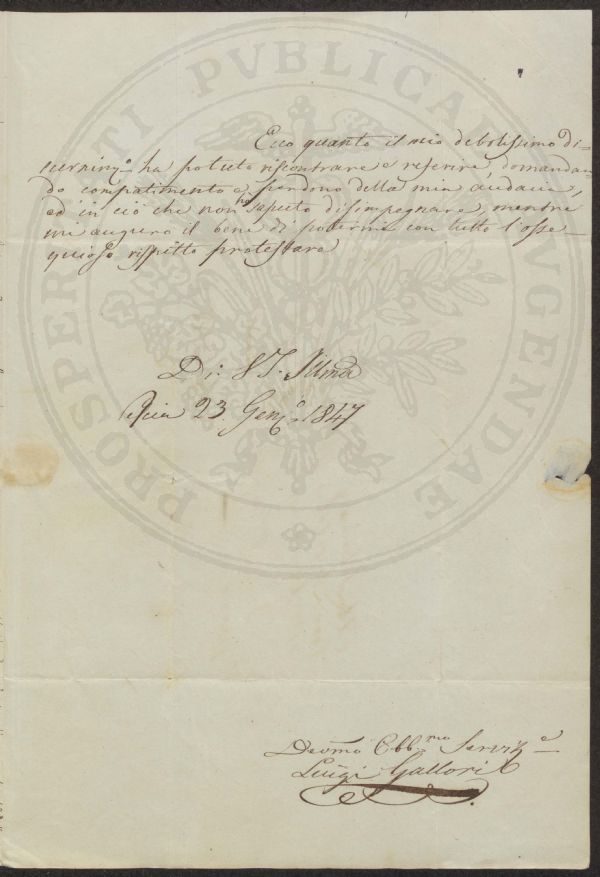 PROSPERITATI PVBLICAE AVGENDAE
Ecco quanto il mio debolissimo di=
scernim.º ha potuto riscontrare e referire, domandan
do compatimento e perdono della mia audacia,
ed in ciò che non ho saputo disimpegnare, mentre
mi auguro il bene di potermi con tutto l'osse_
quioso rispetto protestare
Di: S. I. Illma
Pescia 23 Genº 1847
Devmo Obb.mo Servit.e
Luigi Gallori